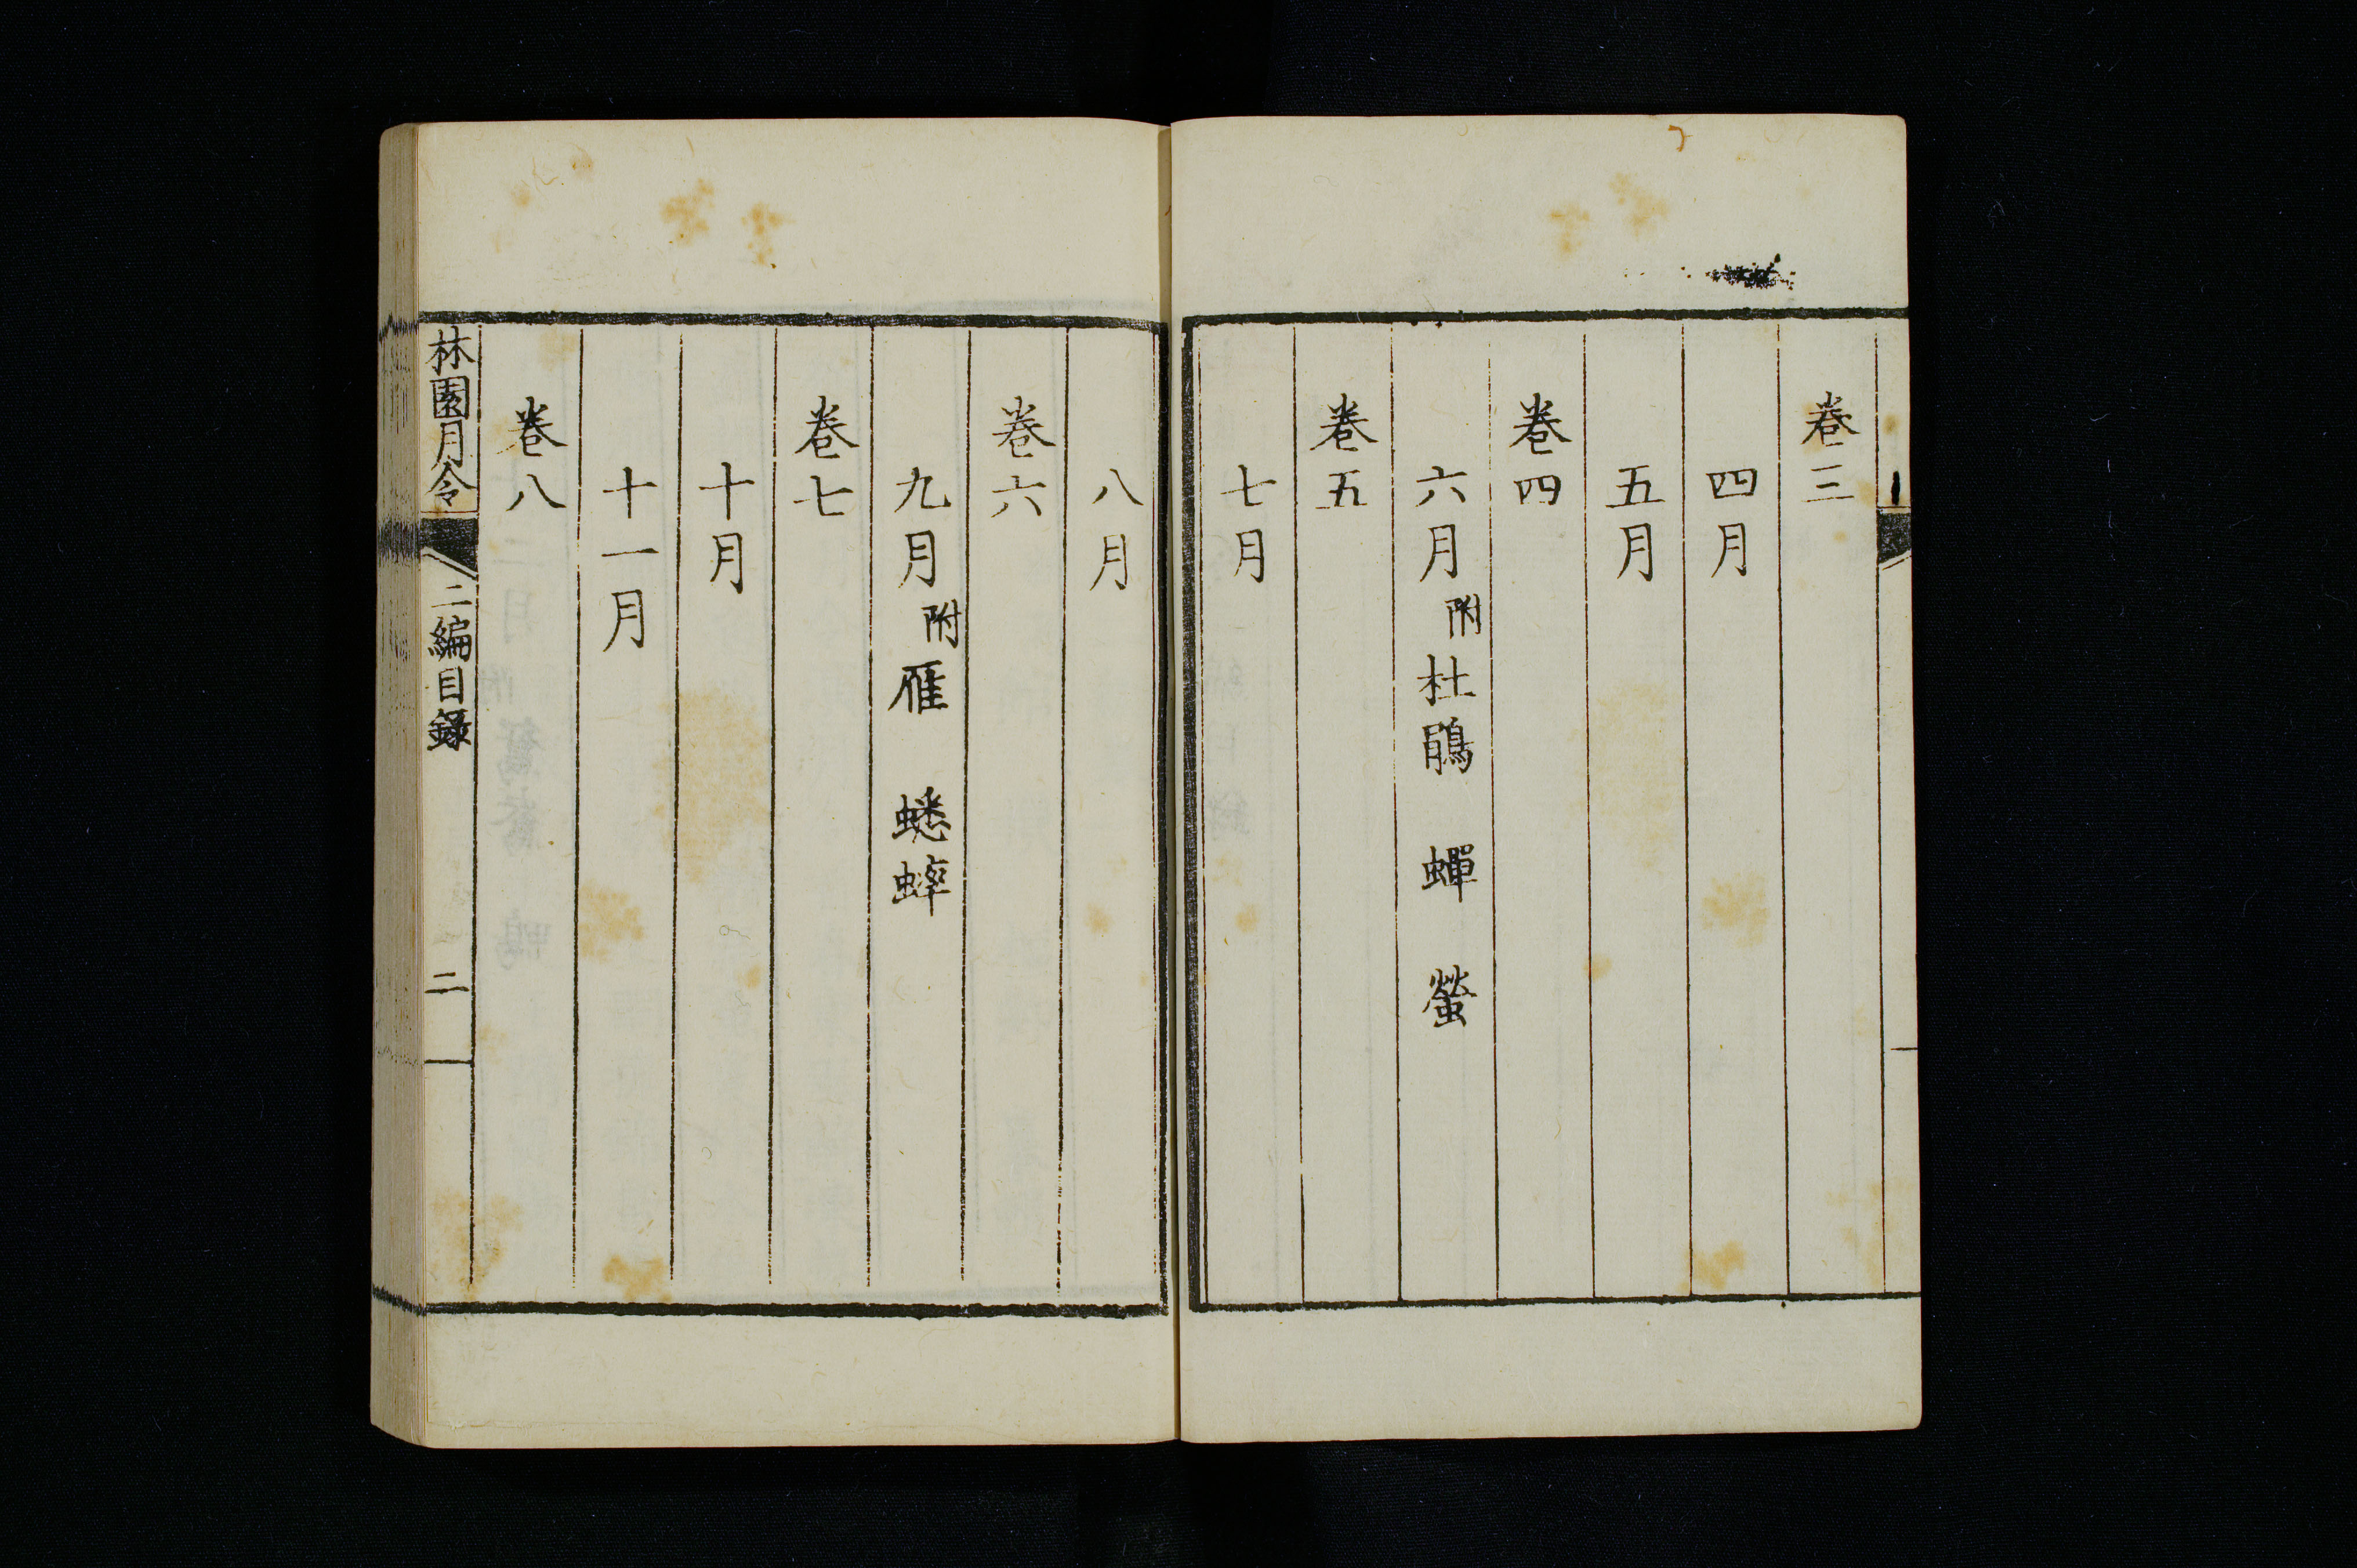 卷三
四月
五月
卷四
六月附杜鵑　蟬　螢
卷五
七月
八月
卷六
九月附雁　蟋蟀
卷七
十月
十一月
卷八
林園月令　二編目錄　二